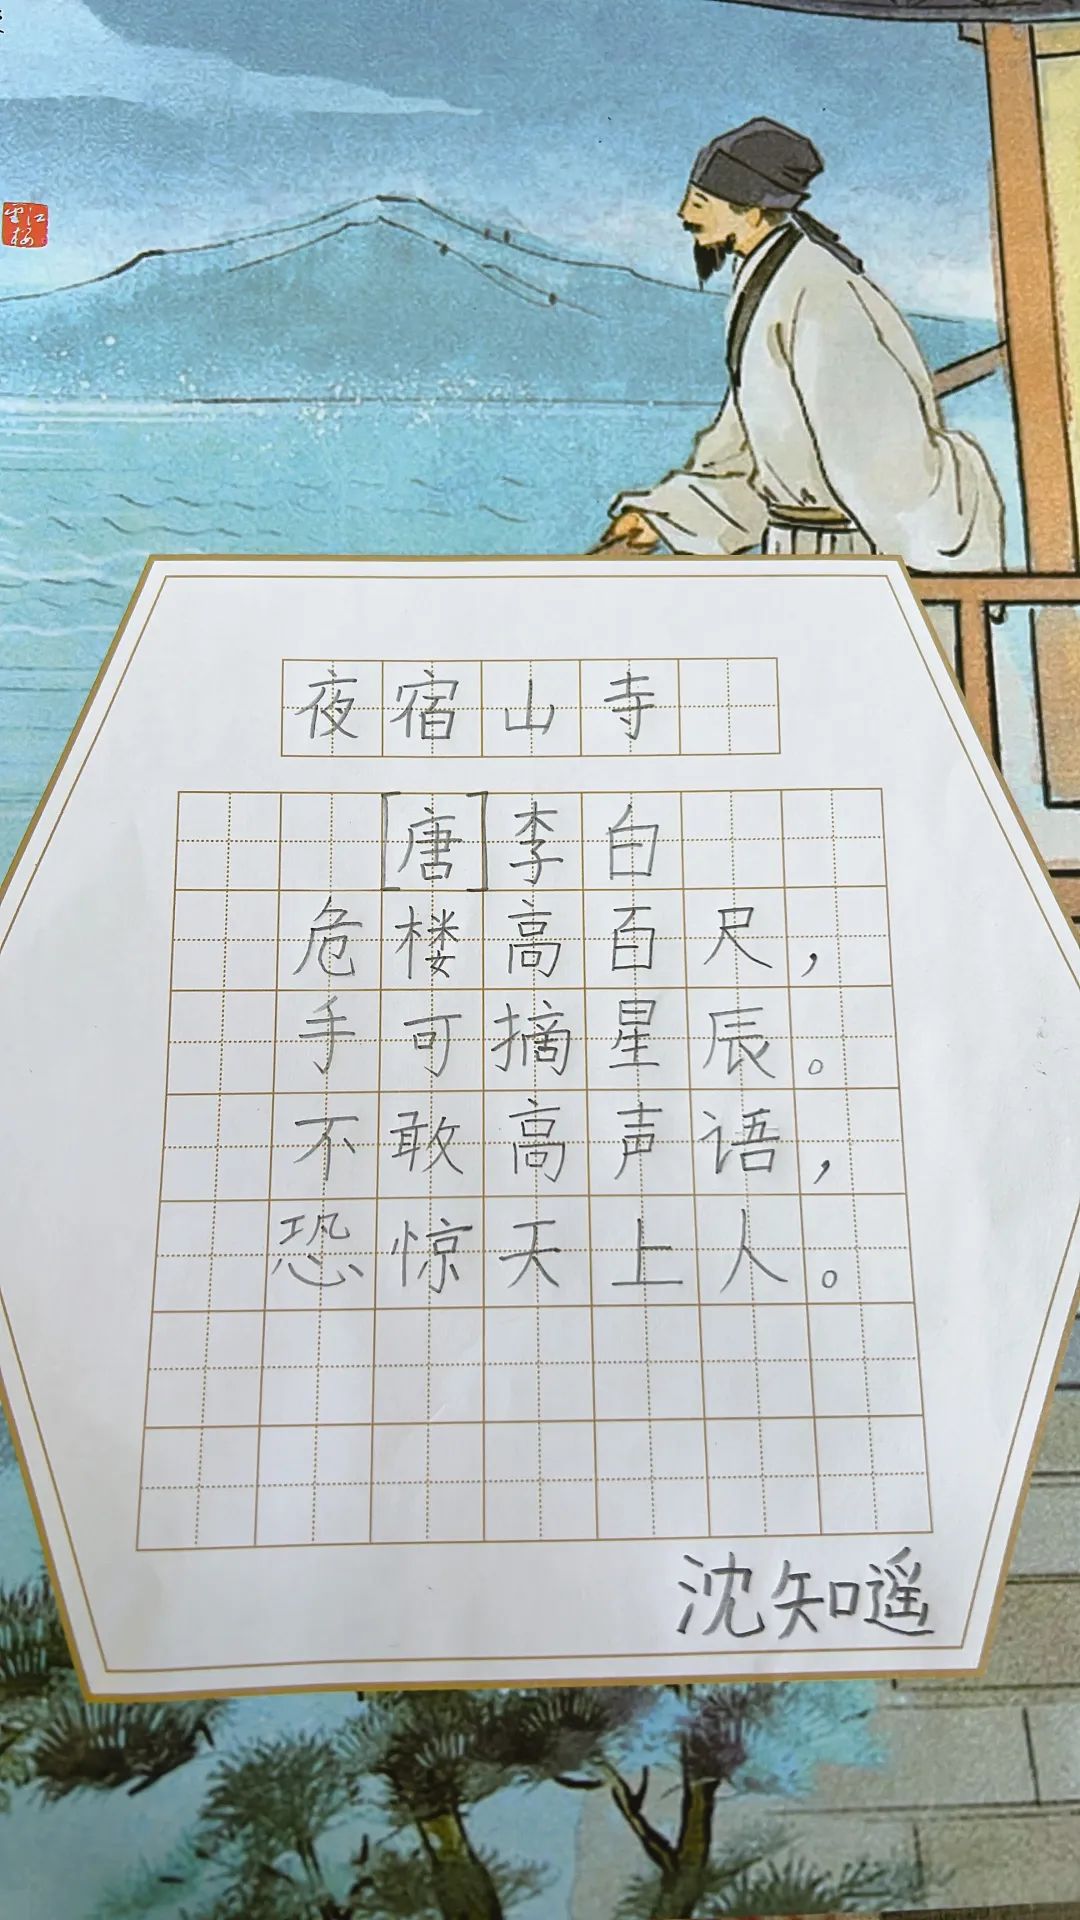 夜宿山寺
[唐]李白
危楼高百尺，
手可摘星辰。
不敢高声语，
恐惊天上人。
沈知遥